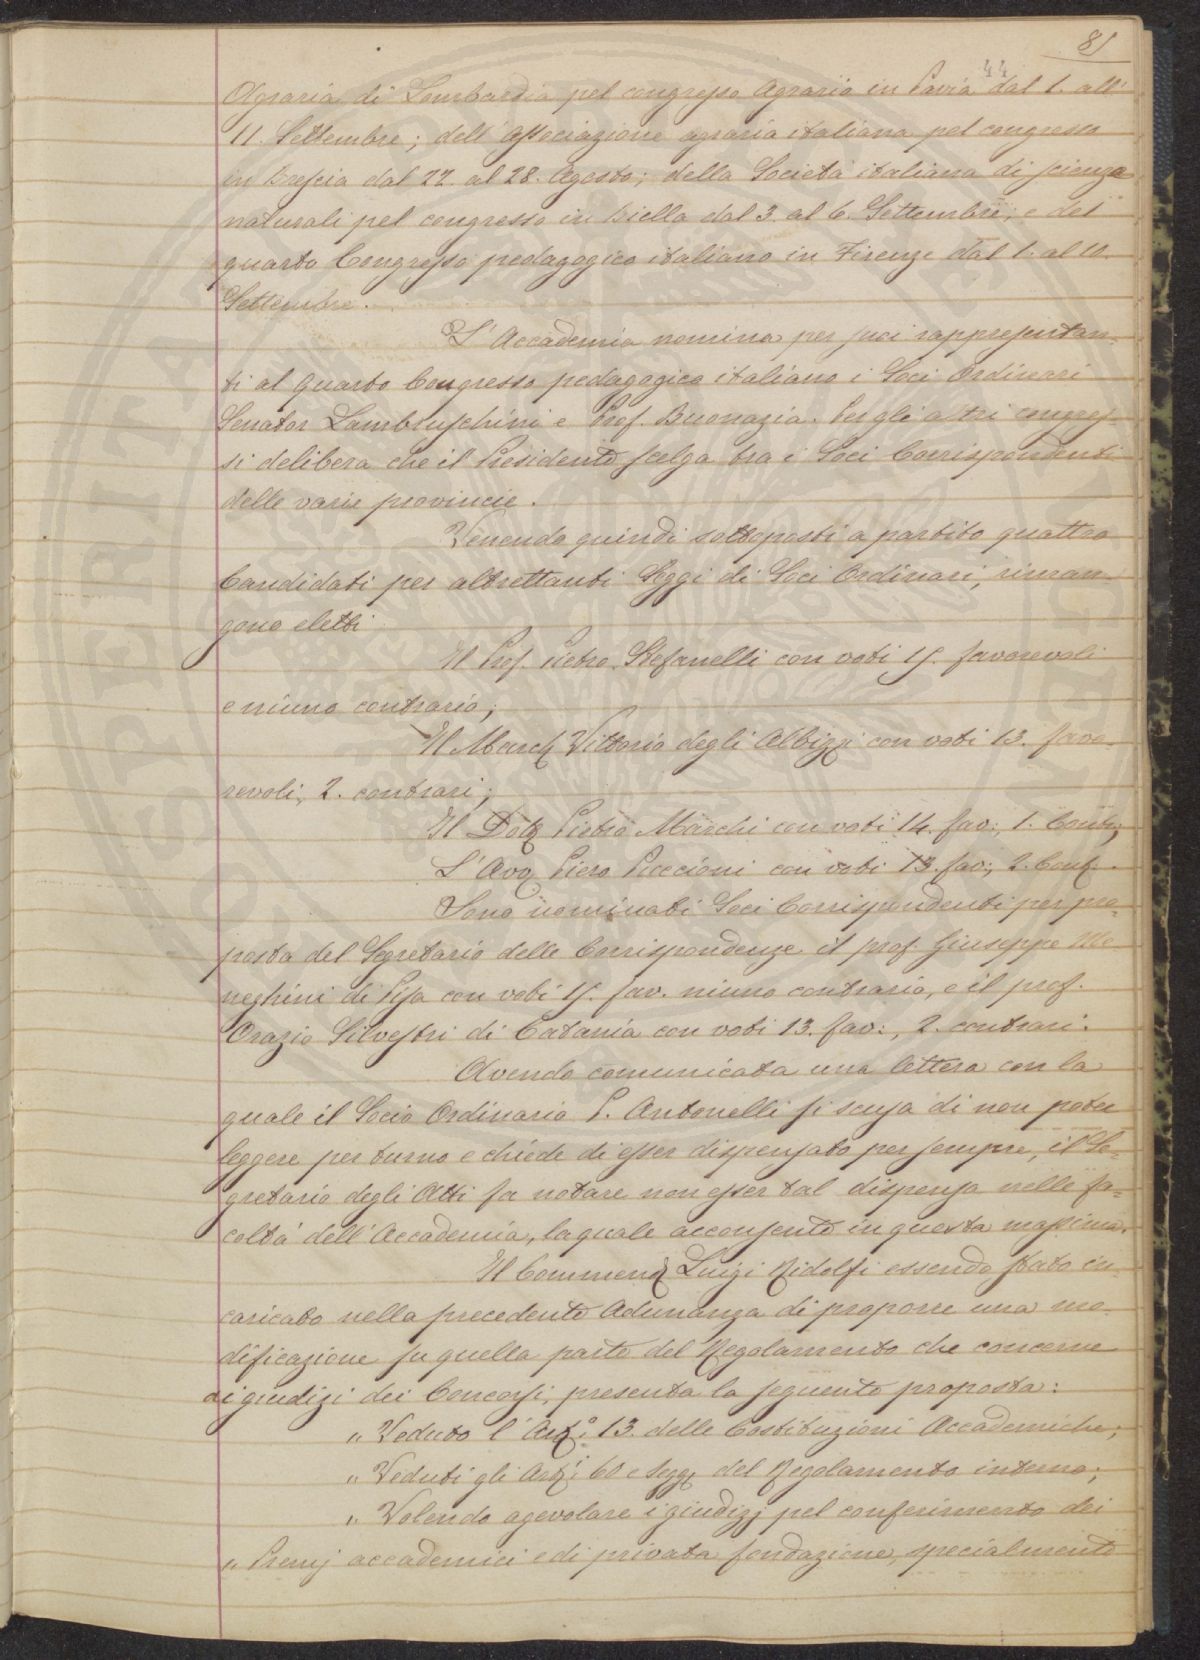 81
44
Agraria di Lombardia pel congresso Agrario in Pavia dal 1. all'
11. Settembre; dell'Associazione agraria italiana pel congresso
in Brescia dal 22. al 28. Agosto; della Società italiana di scienze
naturali pel congresso in Biella dal 3. al 6. Settembre; e del
quarto Congresso pedagogico italiano in Firenze dal 1. al 10.
Settembre.
L'Accademia nomina per suoi rappresentan-
ti al quarto Congresso pedagogico italiano i Soci Ordinari
Senator Lambruschini e Prof. Buonazia. Per gli altri congres-
si delibera che il Presidente scelga tra i Soci Corrispondenti
delle varie provincie.
Venendo quindi sottoposti a partito quattro
Candidati per altrettanti Seggi di Soci Ordinari, riman-
gono eletti
Il Prof. Pietro Stefanelli con voti 15. favorevoli
e niuno contrario;
Il March. Vittorio degli Albizzj con voti 13. favo-
revoli, 2. contrari;
Il Dott. Pietro Marchi con voti 14. fav:, 1. Contr;
L'Avv. Piero Puccioni con voti 13. fav:, 2. Cont.
Sono nominati Soci Corrispondenti per pro-
posta del Segretario delle Corrispondenze il prof. Giuseppe Me-
neghini di Pisa con voti 15. fav. niuno contrario, e il prof.
Orazio Silvestri di Catania con voti 13. fav:, 2. contrari.
Avendo comunicata una lettera con la
quale il Socio Ordinario P. Antonelli si scusa di non poter
leggere per turno e chiede di esser dispensato per sempre, il Se-
gretario degli Atti fa notare non esser tal dispensa nelle fa-
coltà dell'Accademia, la quale acconsente in questa massima.
Il Commend. Luigi Ridolfi essendo stato in-
caricato nella precedente Adunanza di proporre una mo-
dificazione su quella parte del Regolamento che concerne
ai giudizi dei Concorsi, presenta la seguente proposta:
" Veduto l'Art.° 13. delle Costituzioni Accademiche;
" Veduti gli Art.i 60 e segg. del Regolamento interno;
" Volendo agevolare i giudizj pel conferimento dei
" Premj accademici e di privata fondazione, specialmente